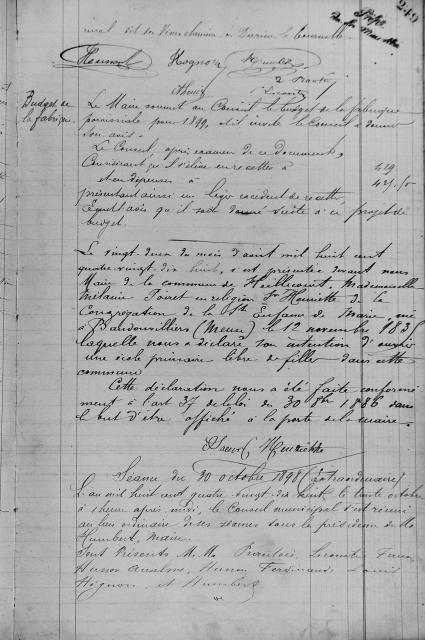 249
rural dit du Vieux chemin ou Derrière le
Budget de
la fabrique
Le Maire soumet au Conseil le budget de la fabrique
paroissiale pour 1899, et il invite le Conseil à donner
son avis.
Le Conseil, après examen de ce document,
Considérant qu'il s'élève en recettes à 429
et en dépenses à
présentant ainsi un léger excédent de recettes,
Emet l'avis qu'il soit donné suite à ce projet de
budget.
Le vingt deux du mois d'août mil huit cent
quatre vingt dix huit, s'est présentée devant nous
Maire de la commune de Mademoiselle
en religion Sr Henriette de la
Congrégation de la Ste Enfance de Marie, née
à Baudonvilliers (Meuse) le 12 novembre 183
laquelle nous a déclaré son intention d'ouvrir
une école primaire libre de filles dans cette
commune
Cette déclaration nous a été faite conformé
ment à l'art 37 de la loi du 30 8bre 1886 dans
le but d'être affiché à la porte de la mairie.
Henriette
Séance du 30 octobre 1898 (extraordinaire)
L'an mil huit cent quatre vingt dix huit, le trente octobre
à heure après midi, le Conseil municipal s'est réuni
au lieu ordinaire de ses séances sous la présidence de M.
Humbert, Maire.
Sont Présents M.M.
Husson Anselme, Husson Ferdinand, Louis
Hognon et Humbert